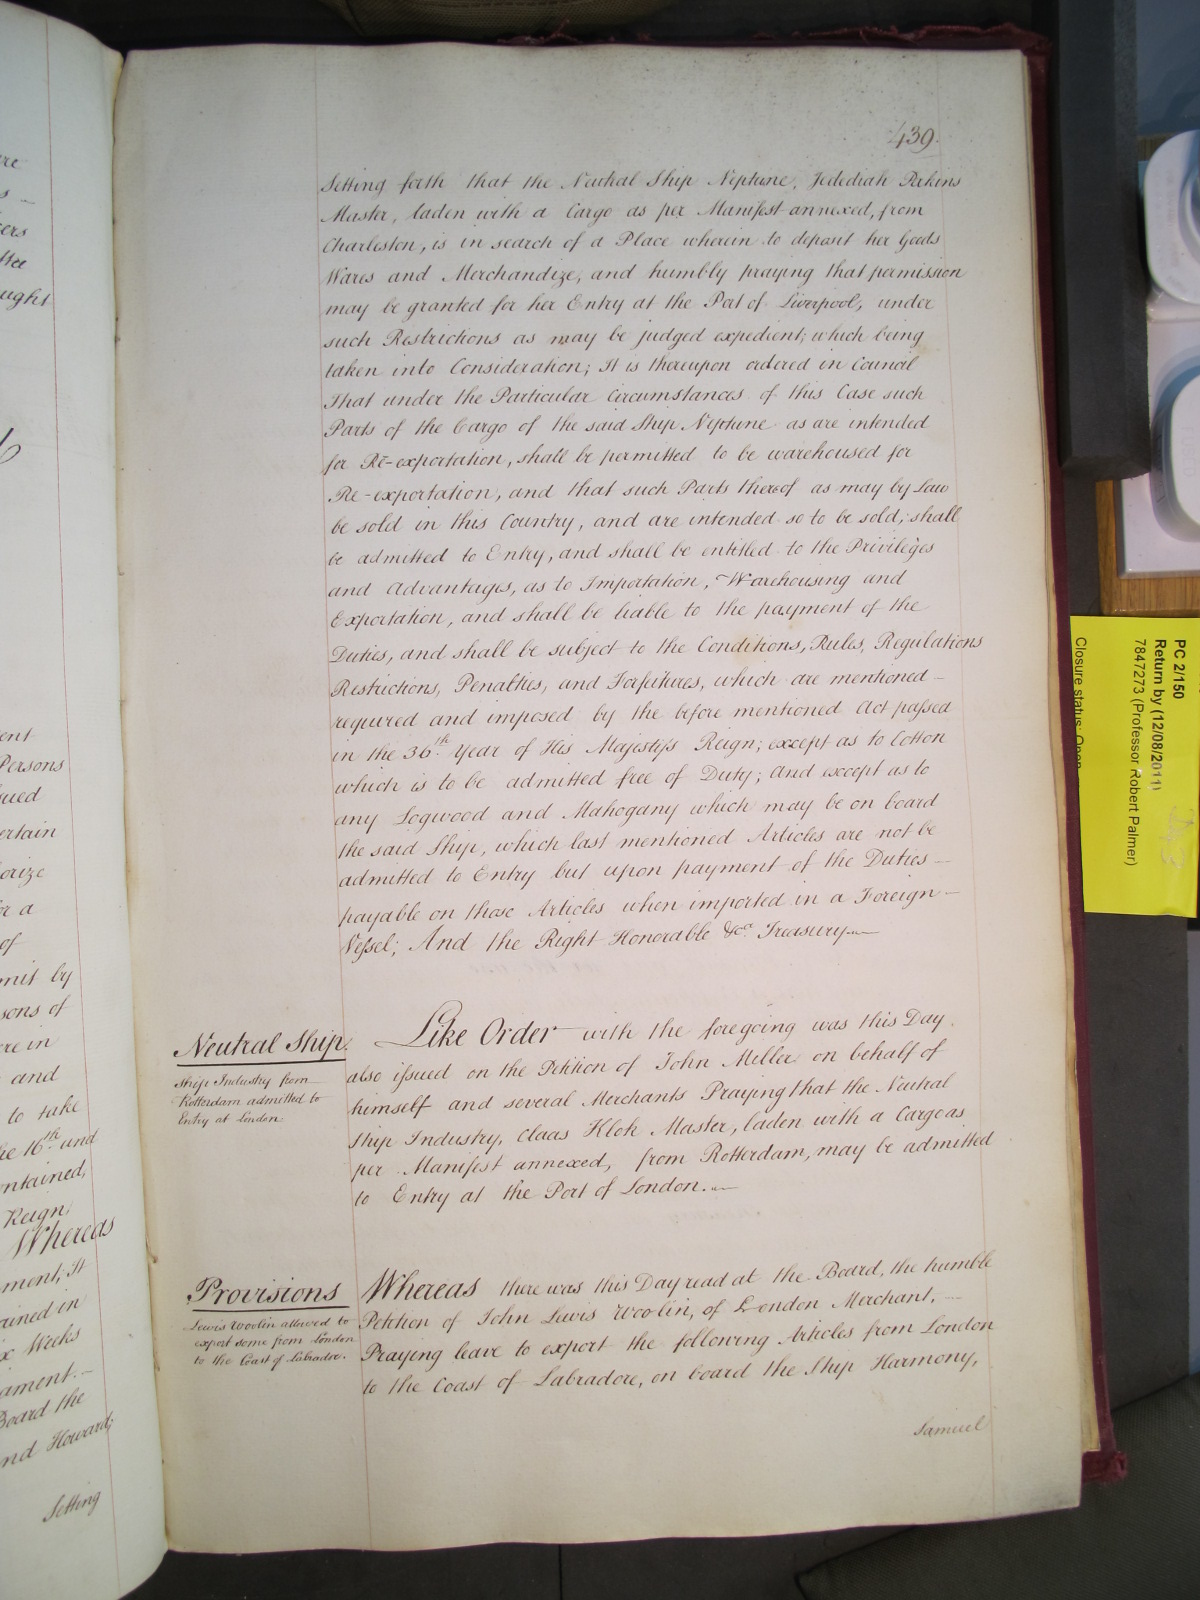 439.
Setting forth that the Neutral Ship Neptune, Jedediah Pirkins
Master, laden with a Cargo as per Manifest annexed, from
Charleston, is in search of a Place wherein to deposit her Goods
Wares and Merchandize, and humbly praying that permission
may be granted for her Entry at the Port of Liverpool, under
such Restrictions as may be judged expedient; which being
taken into Consideration; It is thereupon ordered in Council
That under the Particular Circumstances of this Case such
Parts of the Cargo of the said Ship Neptune as are intended
for Re-exportation, shall be permitted to be warehoused for
Re-exportation, and that such Parts thereof as may by Law
be sold in this Country, and are intended so to be sold, shall
be admitted to Entry, and shall be entitled to the Privileges
and Advantages, as to Importation, Warehousing and
Exportation, and shall be liable to the payment of the
Duties, and shall be subject to the Conditions, Rules, Regulations
Restrictions, Penalties, and Forfeitures, which are mentioned
required and imposed by the before mentioned Act passed
in the 36th Year of His Majesty's Reign; except as to Cotton
which is to be admitted free of Duty; And except as to
any Logwood and Mahogany which may be on board
the said Ship, which last mentioned Articles are not be
admitted to Entry but upon payment of the Duties
payable on those Articles when imported in a Foreign
Vessel; And the Right Honorable &ca. Treasury
Neutral Ship.
Ship Industry from
Rotterdam admitted to
Entry at London
Like Order with the foregoing was this Day
also issued on the Petition of John Miller on behalf of
himself and several Merchants Praying that the Neutral
Ship Industry, Claas Klok Master, laden with a Cargo as
per Manifest annexed, from Rotterdam, may be admitted
to Entry at the Port of London.
Provisions
Lewis Woolin allowed to
export some from London
to the Coast of Labradore.
Whereas there was this Day read at the Board, the humble
Petition of John Lewis Woolin, of London Merchant,
Praying leave to export the following Articles from London
to the Coast of Labradore, on board the Ship Harmony,
Samuel
ught
ent
Persons
sued
ertain
orize
or a
of
mit by
sons of
ere in
and
to take
he 16th and
ontained,
Reign;
Whereas
ment, It
ained in
ix Weeks
ament.
Board the
nd Howard;
Setting
PC 2/150
Return by (12/08/2011)
7847273 (Professor Robert Palmer)
Closure status: Open